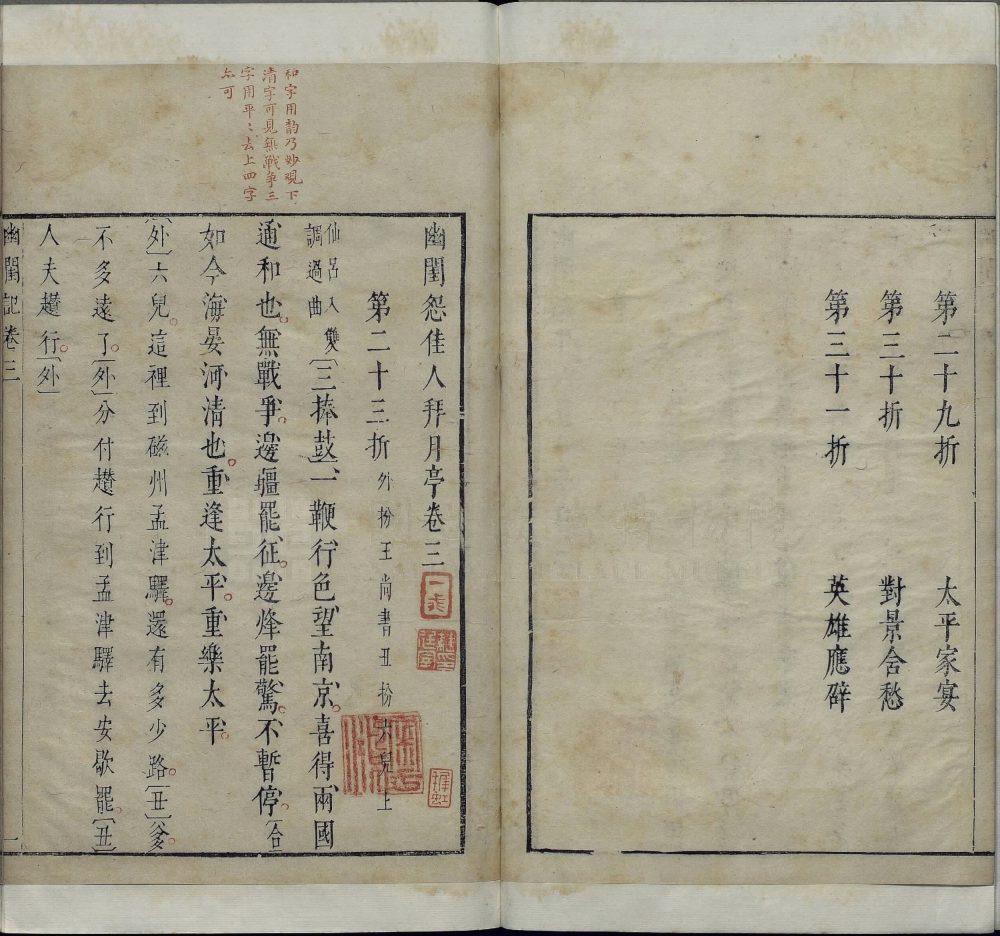 第二十九折 太平家宴
第三十折 對景含愁
第三十一折 英雄應辟
和字用韵乃妙觀下
清字可見無戰爭三
字用平〻去上四字
亦可
幽閨怨佳人拜月亭卷三
第二十三折 外扮王尚書丑扮六兒上
仙呂入雙調過曲〔三捧鼓〕一鞭行色望南京。喜得兩國
通和也。無戰爭。邊疆罷征。邊烽罷驚。不暫停。〔合〕
如今海晏河清也。重逢太平。重樂太平。
〔外〕六兒。這裡到磁州孟津驛。還有多少路。〔丑〕爹。
不多遠了。〔外〕分付趲行到孟津驛去安歇罷。〔丑〕
人夫趲行。〔外〕
幽閨記卷三 一